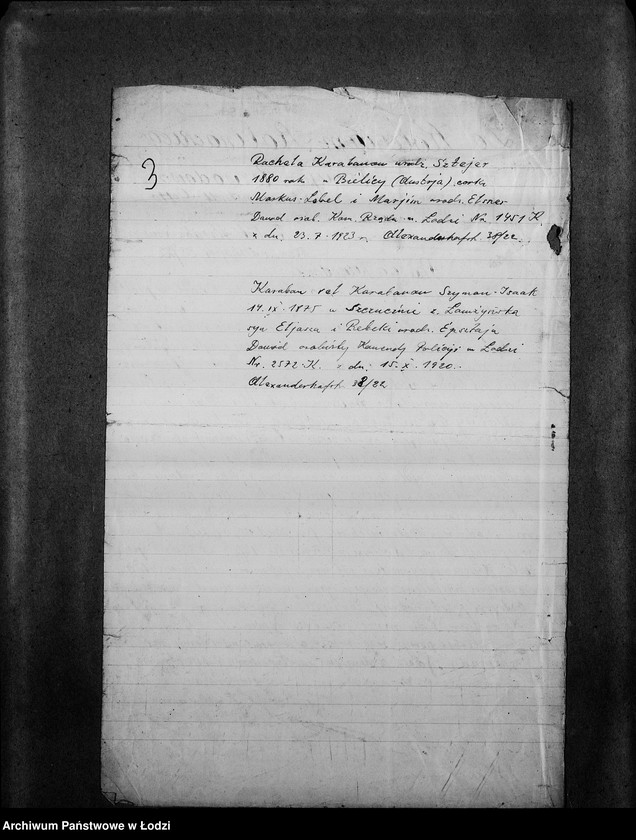 3
Rachela Karabanow urodz. Sztejer
1880 rok w Bielicy (Austrja) corka
Markus-Lobel i Marjim urodz. Elsner
Dowod osob. Kom. Rządu m. Lodzi No 1451 K.
z dn. 23. 7. 1923 r. Alexanderhofstr. 38/22.
Karaban vel Karabanow Szymon-Isaak
14. IX. 1875 w Szczuczinie z.
syn Eljasza i Rebeki urodz. Epsztajn
Dowód osobisty Komendy Policyi m. Lodzi
Nr. 2572 K. z dn. 15. X. 1920.
Alexanderhofstr. 38/22
Archiwum Państwowe w Łodzi